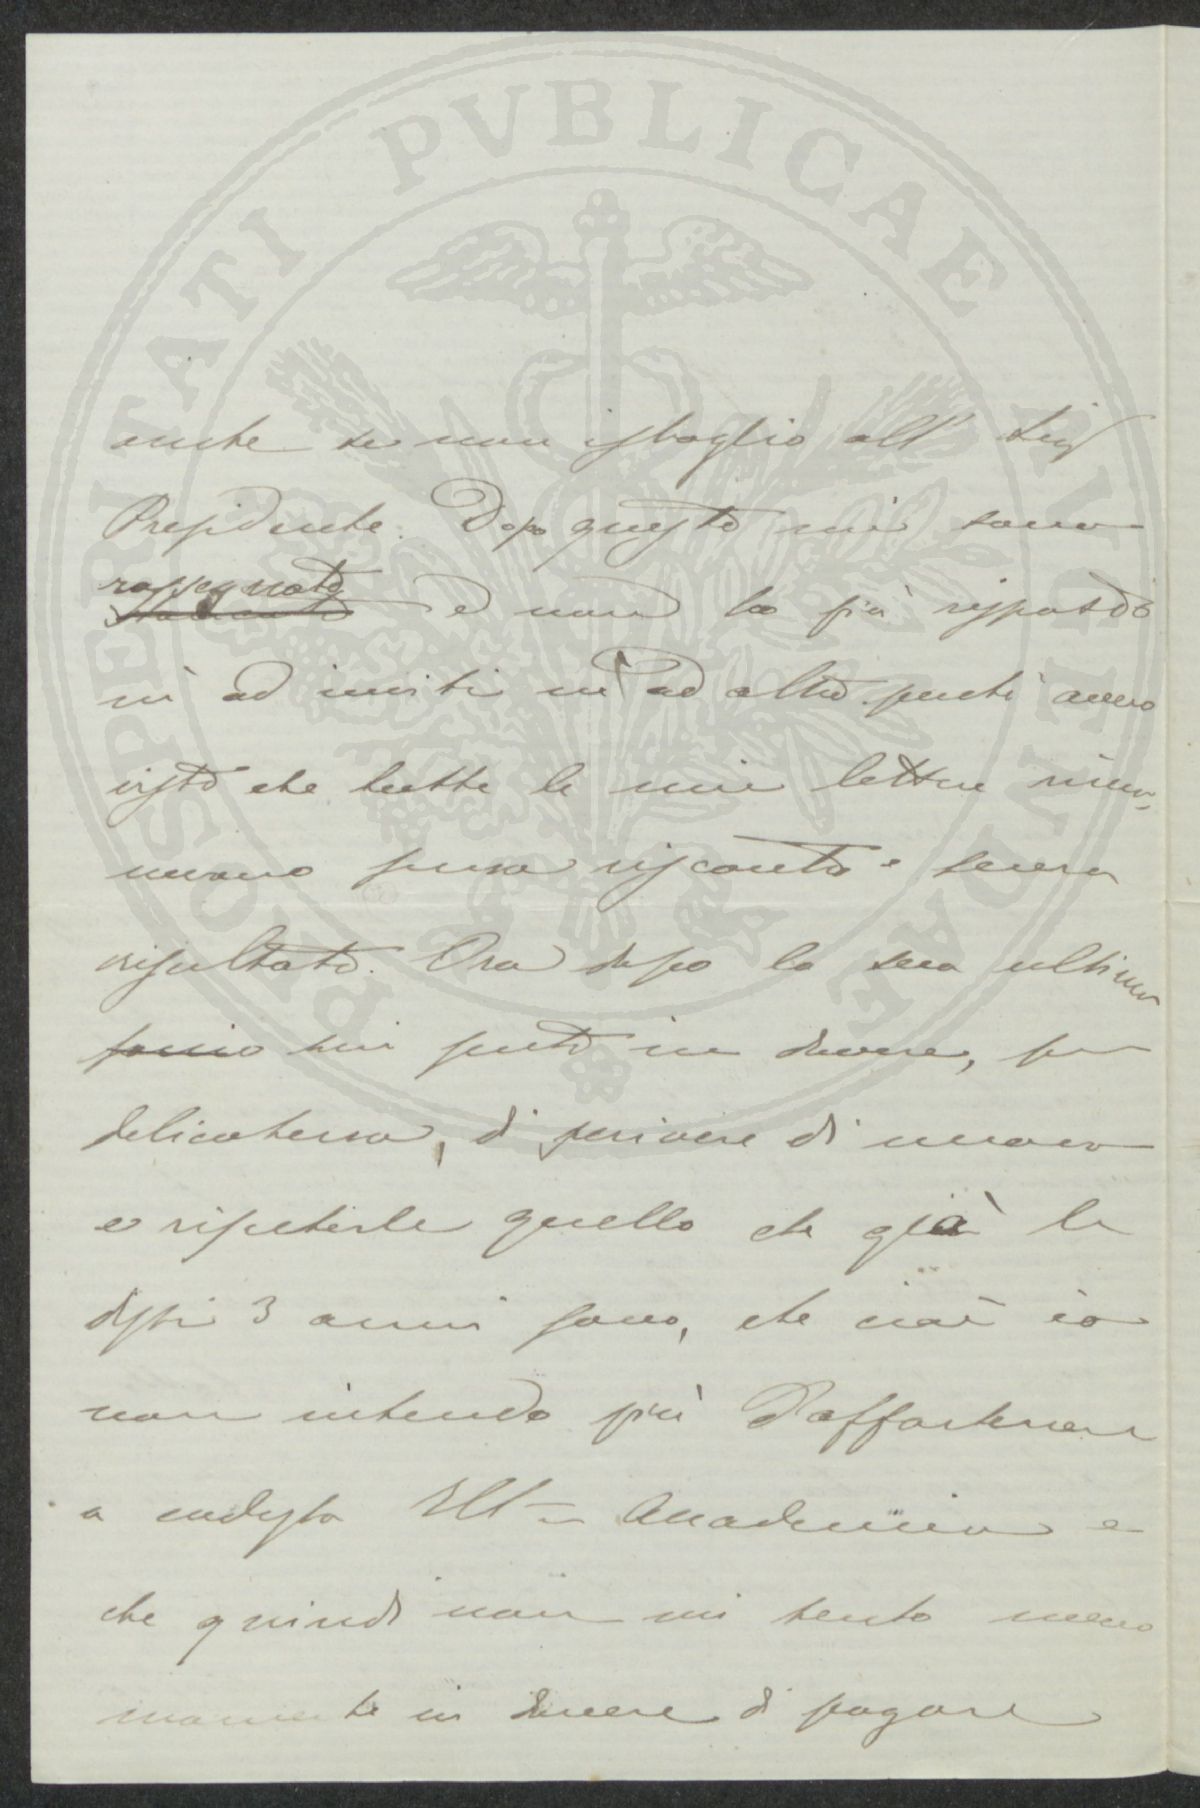 PROSPERITATI PVBLICAE AVGENDAE
anche se non isbaglio all' Sig
Presidente. Dopo questo mi sono
rassegnato e non ho più risposto
nè ad inviti nè ad altro perchè avevo
visto che tutte le mie lettere rima-
nevano senza riscontro e senza
risultato. Ora dopo la sua ultima
mi sento in dovere, per
delicatezza, di scrivere di nuovo
e ripeterle quello che già le
dissi 3 anni sono, che cioè io
non intendo più d'appartenere
a codesta Ill. Accademia e
che quindi non mi sento meno
mamente in dovere di pagare